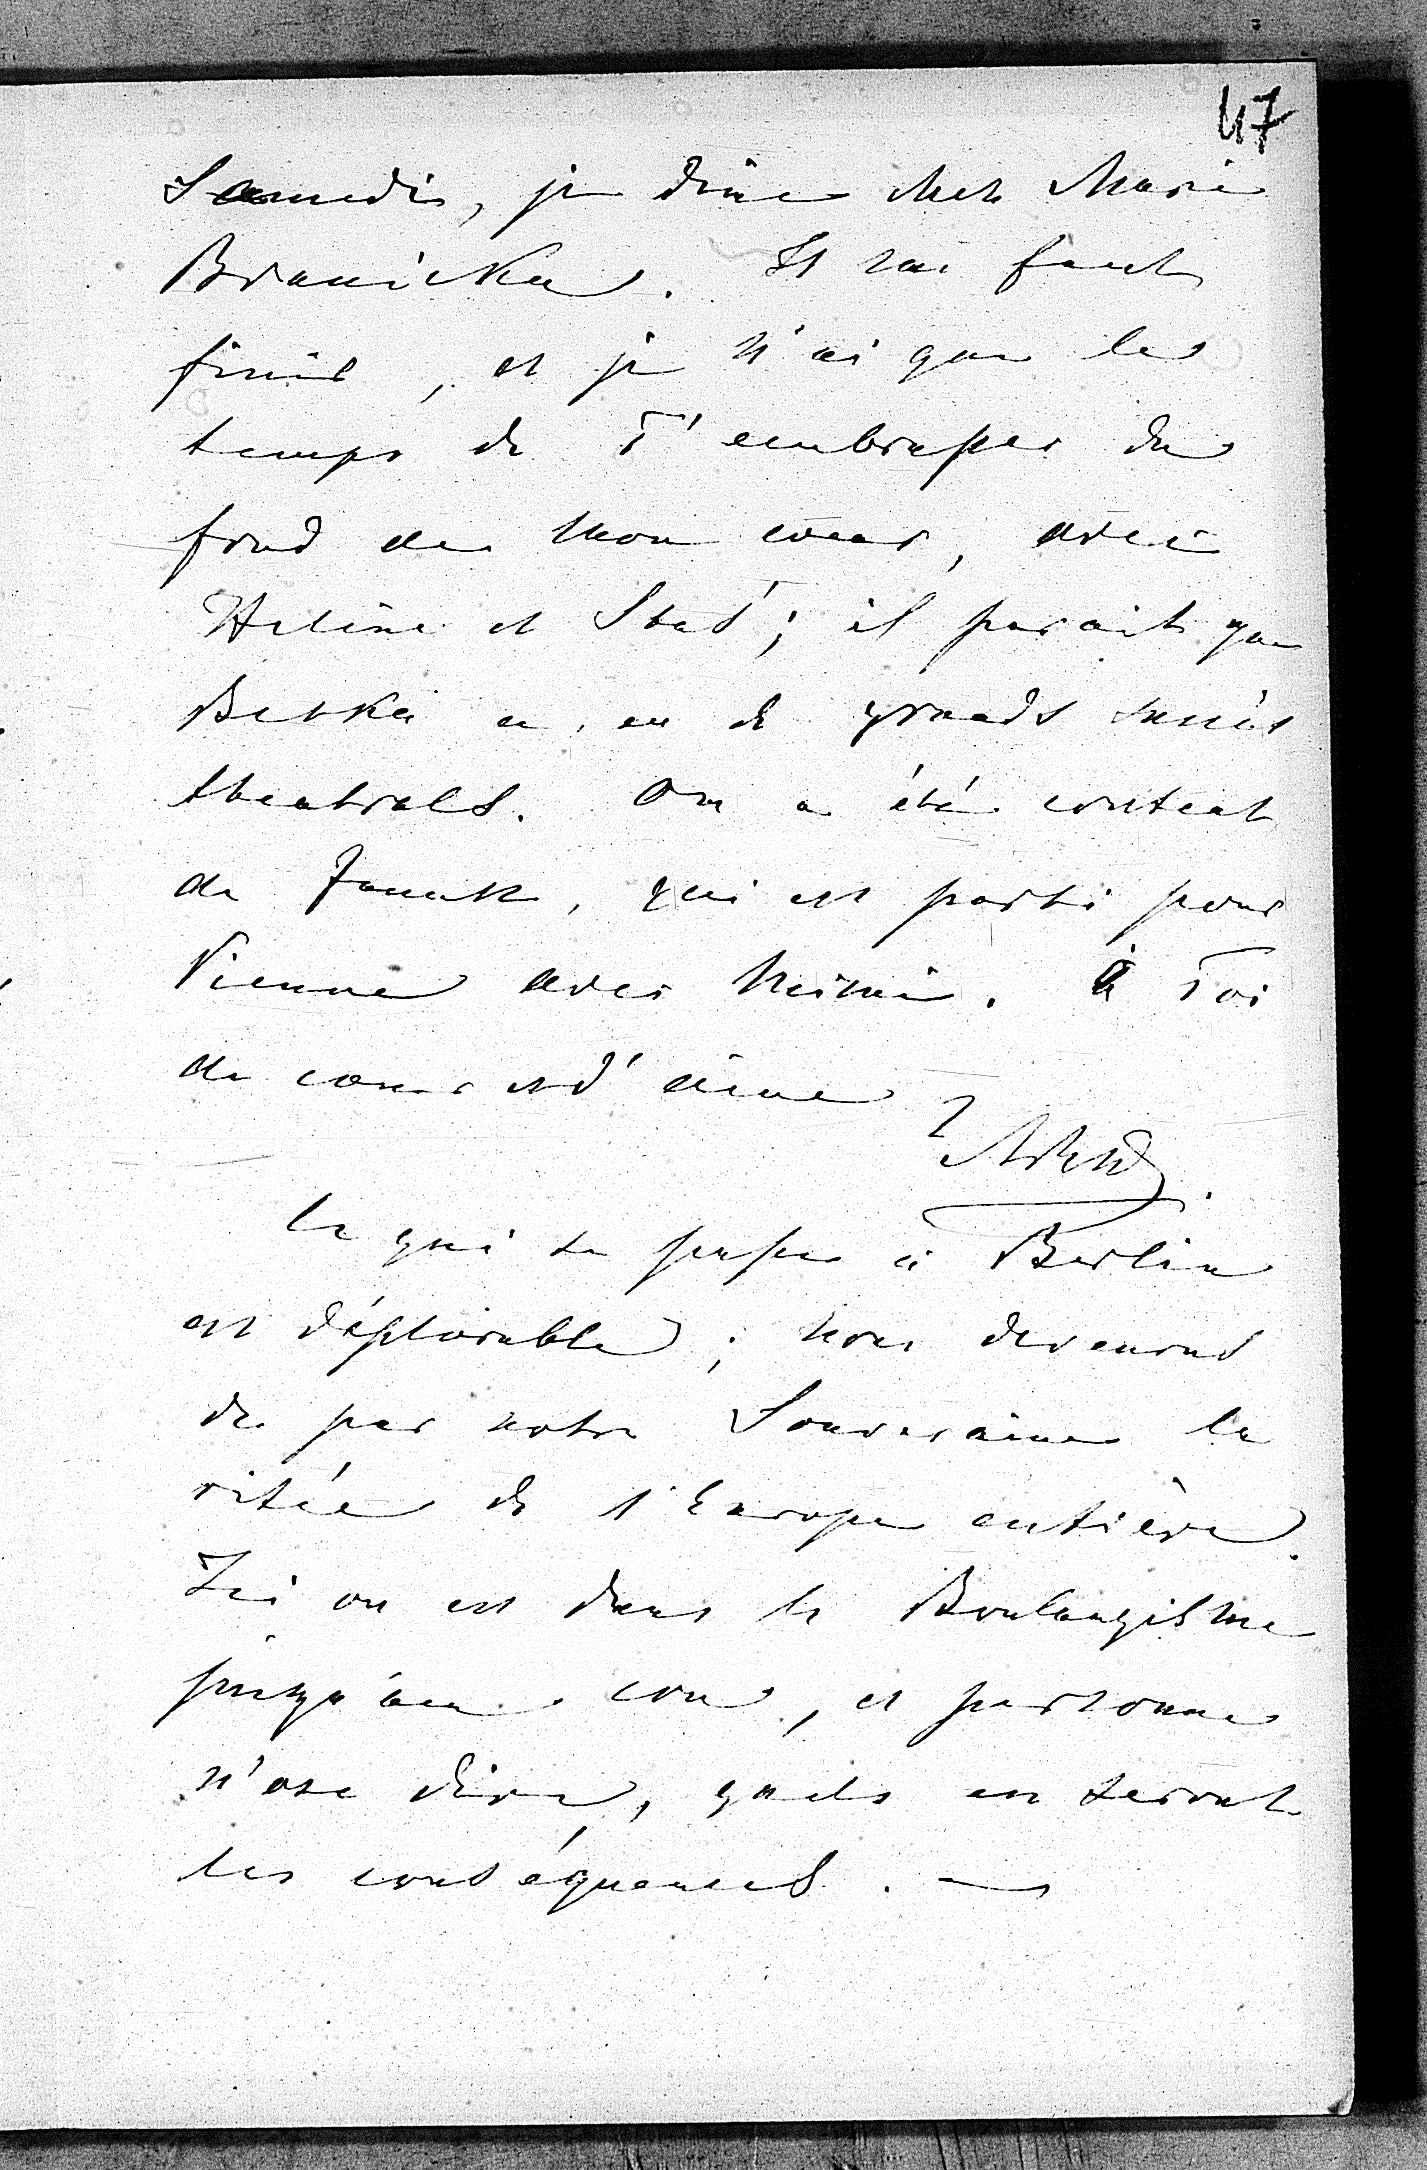 47
Samedi, je dîne chez Marie
Branicka. Il me faut
finir, et je n'ai que le
temps de T'embrasser du
fond de mon cœur, avec
Helène et Stas'; il parait que
Betka a eu de grands succès
theatrals. On a été content
de Janek, qui est parti pour
Vienne avec Mimi. à Toi
de cœur et d'âme
Ce qui se passe à Berlin
est déplorable; nous devenons
de par notre Souveraine la
risée de l'Europe entière.
Ici on est dans le Boulangisme
jusqu'au cou, et personne
n'ose dire, quels en seront
les conséquences. —